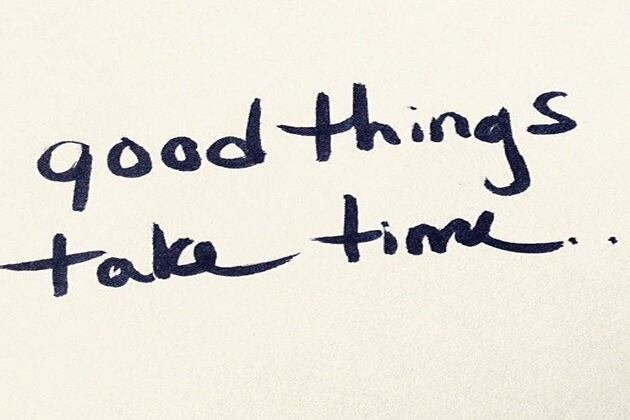 good things
take time..